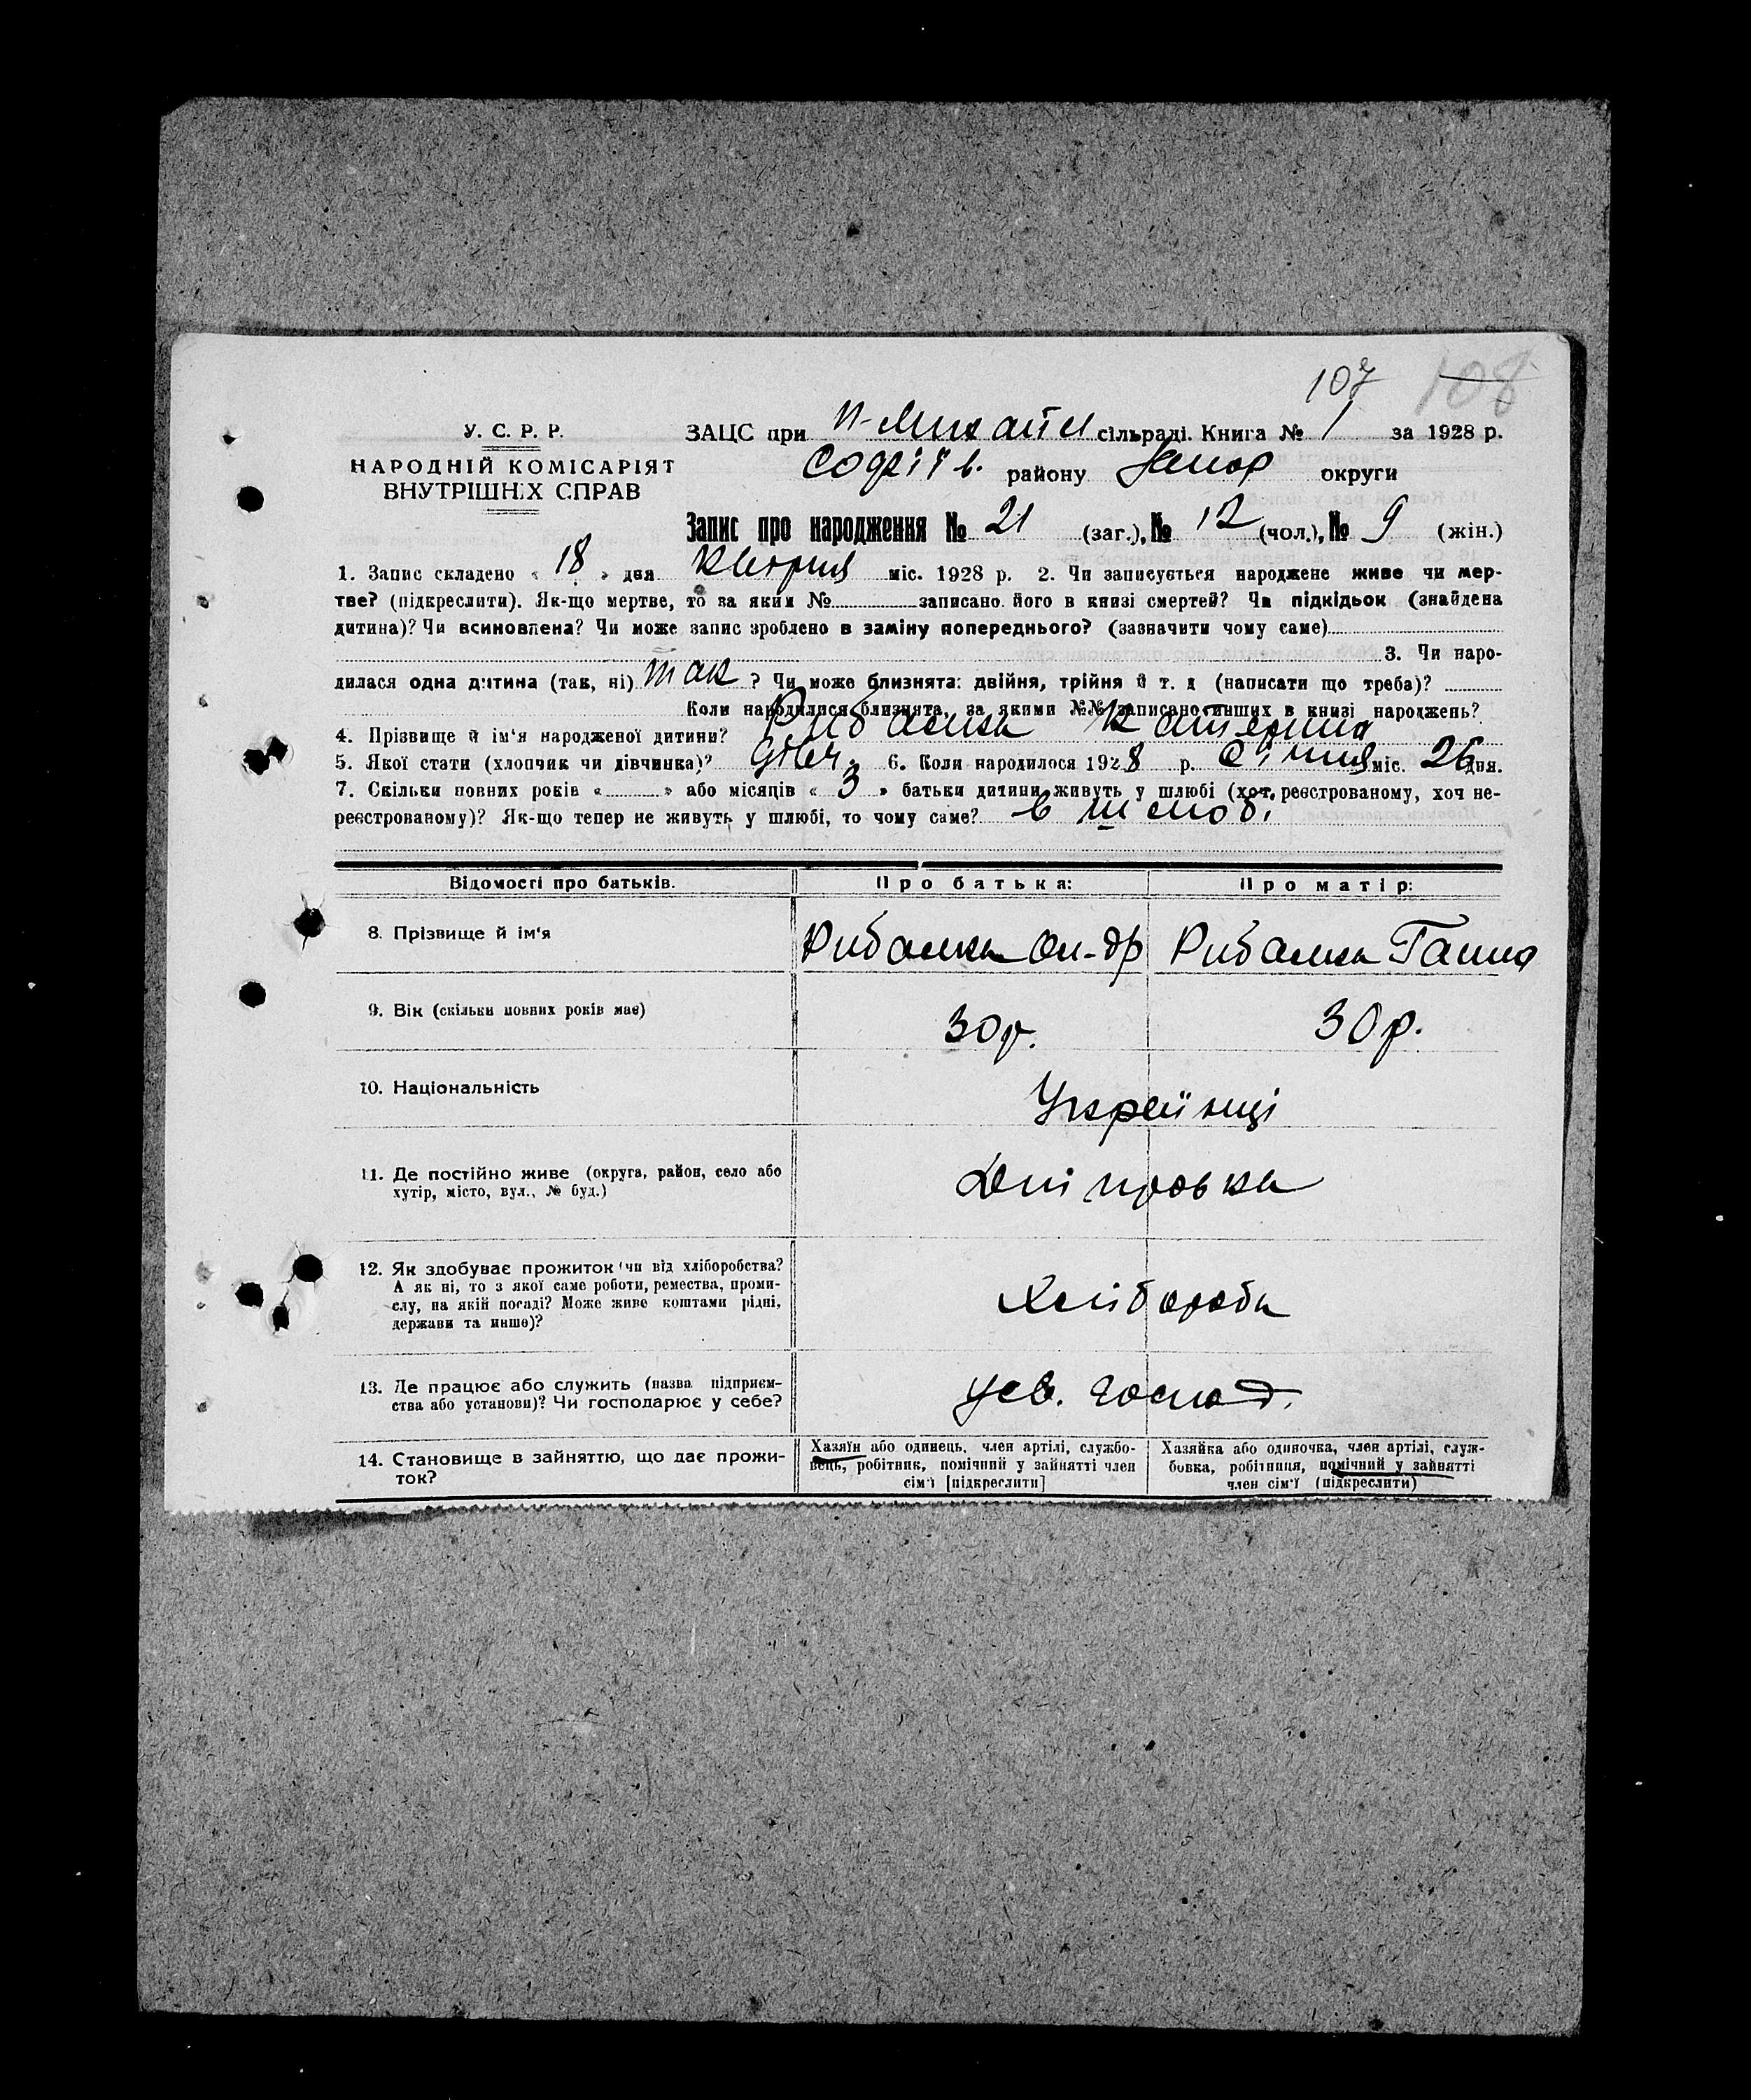 107 108
У. С. Р. Р.
НАРОДНІЙ КОМІСАРІЯТ
ВНУТРІШНІХ СПРАВ
ЗАЦС при сільраді. Книга № 1 за 1928 р.
Софіїв. району Запор округи
Запис про народження № 21 (заг.), № 12 (чол.), № 9 (жін.)
1. Запис складено « 18 » дня Квітня міс. 1928 р. 2. Чи записується народжене живе чи мер-
тве? (підкреслити). Як-що мертве, то за яким № записано його в книзі смертей? Чи підкідьок (знайдена
дитина)? Чи всиновлена? Чи може запис зроблено в заміну попереднього? (зазначити чому саме)
3. Чи наро-
дилася одна дитина (так, ні) так ? Чи може близнята: двійня, трійня й т. д (написати що треба)?
Коли народилися близнята, за якими №№ записано инших в книзі народжень?
4. Прізвище й ім'я народженої дитини? Рибалка Катерина
5. Якої стати (хлопчик чи дівчинка)? дівч. 6. Коли народилося 1928 р. Січня міс. 26 дня.
7. Скільки повних років « » або місяців « 3 » батьки дитини живуть у шлюбі (хоч реєстрованому, хоч не-
реєстрованому)? Як-що тепер не живуть у шлюбі, то чому саме? в шлюбі
Відомості про батьків. Про батька: Про матір:
8. Прізвище й ім'я Рибалка Ол-др Рибалка Ганна
9. Вік (скільки повних років має) 30 р. 30 р.
10. Національність Українці
11. Де постійно живе (округа, район, село або
хутір, місто, вул., № буд.) Дніпровка
12. Як здобуває прожиток (чи від хліборобства?
А як ні, то з якої саме роботи, ремества, проми-
слу, на якій посаді? Може живе коштами рідні,
держави та инше)? Хлібороби
13. Де працює або служить (назва підприєм-
ства або установи)? Чи господарює у себе? у св. господ.
14. Становище в зайняттю, що дає прожи-
ток?
Хазяїн або одинець, член артілі, службо-
вець, робітник, помічний у зайнятті член
сім'ї [підкреслити]
Хазяйка або одиночка, член артілі, служ-
бовка, робітниця, помічний у зайнятті
член сім'ї (підкреслити)